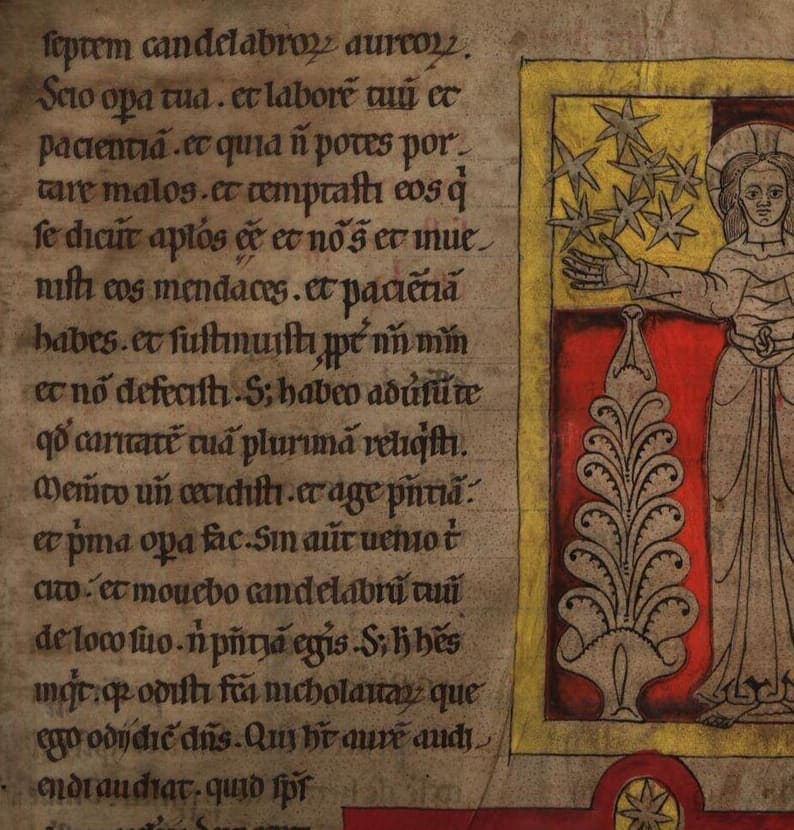 septem candelabroꝝ aureoꝝ.
Scio oꝑa tua. et laborē tuū et
pacientiā. et quia n̄ potes por-
tare malos. et temptasti eos q̇
se dicūt aptɫos eē et nō s̄t et inue-
nisti eos mendaces. et paciētiā
habes. et sustinuisti ꝓpt̉ nn̄ mm̄
et nō defecisti. S; habeo adūsū te
qđ caritatē tuā plurimā reliq̇sti.
Mem̄to un̄ cecidisti. et age pn̄tiā:
et ṗma oꝑa fac. Sin aūt uenio t̉
cito. et mouebo candelabrū tuū
de loco suo. n̉ pn̄tiā egis. S; h̉ hēs
inq̇t. qꝛ odisti fc̄a nicholaitaꝝ que
ego odij dic̄ dn̄s. Qui ht̄ aurē audi-
endi audiat. quid sp̄s